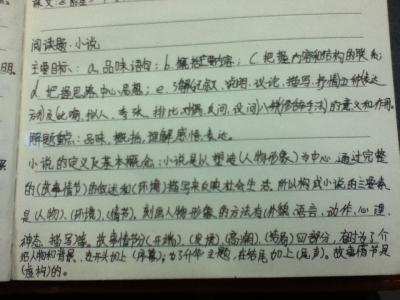 阅读题:小说
主要目标:a.品味语句;b.概括主要内容;c把握内容和结构的联系;
d.把握思路、中心思想;e.了解记叙、说明、议论、描写、抒情五种表达
方式及比喻、拟人、夸张、排比、对偶、反问、设问八种修辞手法的意义和作用。
解题重点:品味、概括、理解、感悟、表达。
小说的定义及基本概念:小说是以塑造(人物形象)为中心,通过完整
的(故事情节)的叙述和(环境)描写来反映社会生活,所以构成小说的三要素
是(人物)、(环境)、(情节),刻画人物形象的方法有(外貌、语言、动作、心理、
神态)描写等。故事情节分(开端)、(发展)、(高潮)、(结局)四部分,有时为了介
绍人物和背景,在开头加上(序幕);为了升华主题,在结尾加上(尾声)。故事情节是
(虚构)的。